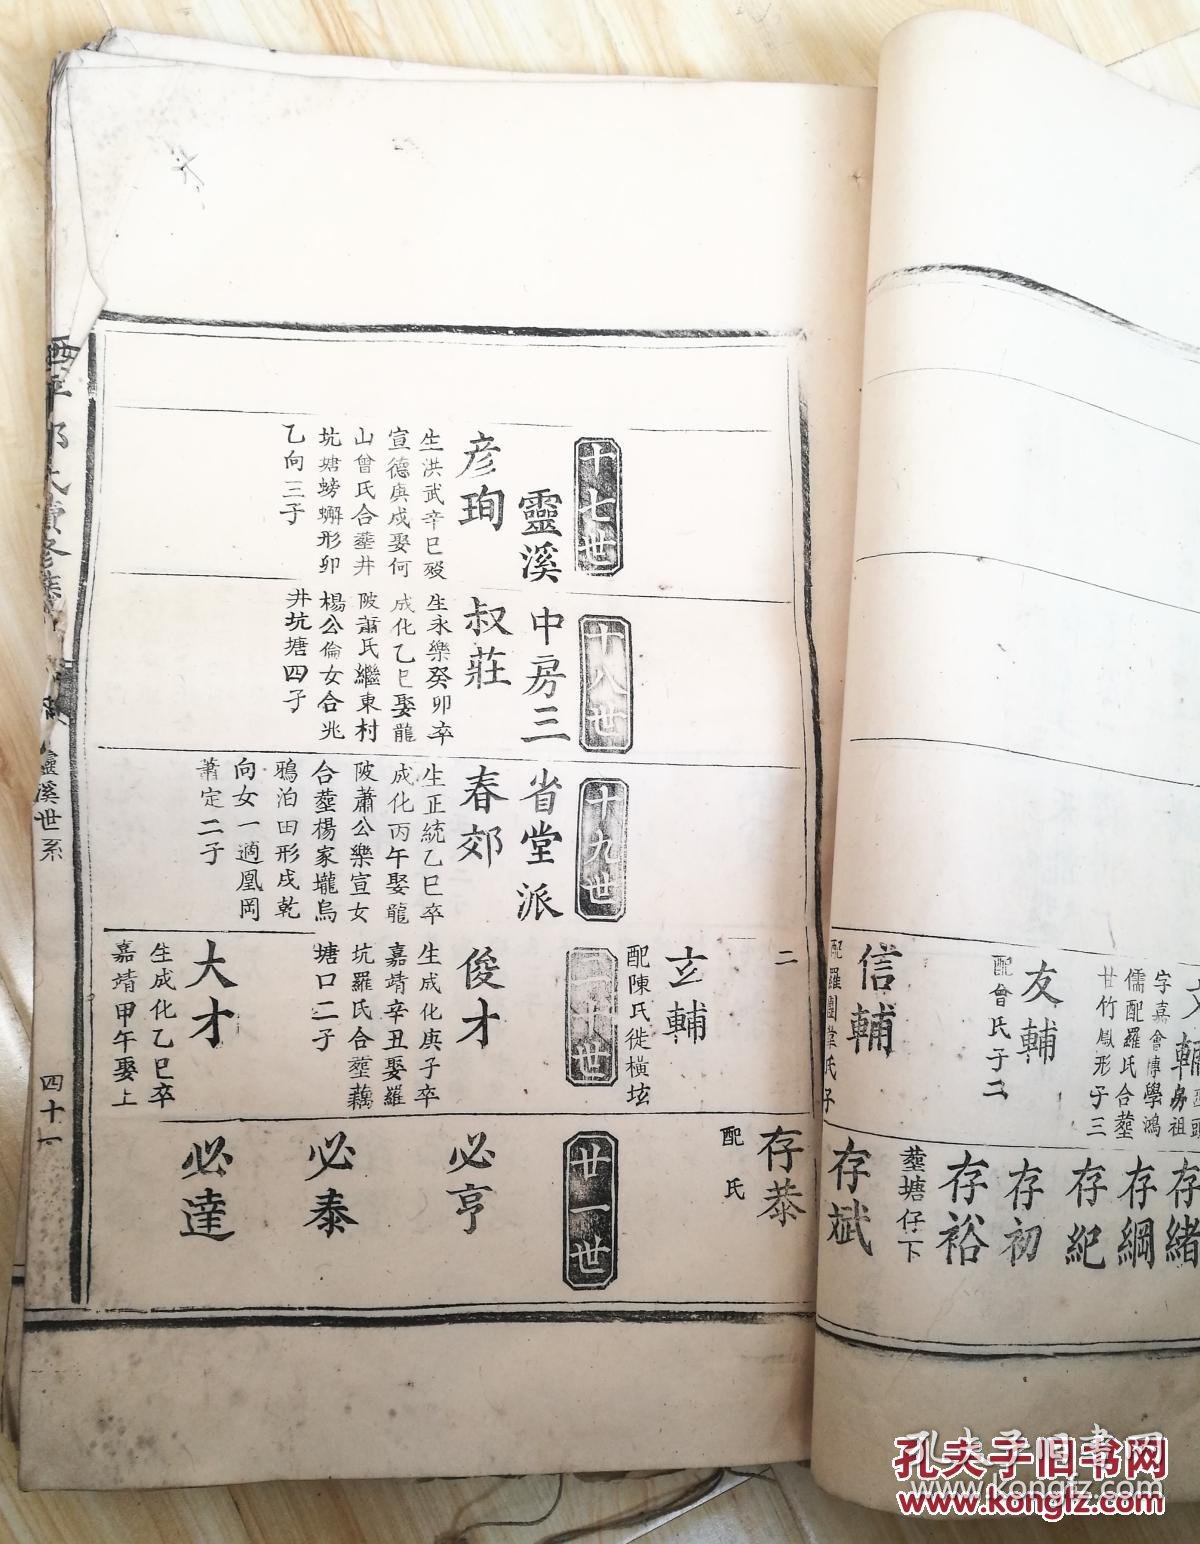 存緒
字嘉會博學鴻
儒配羅氏合塟
甘竹鳳形子三
存綱
存紀
友輔
配曾氏子二
存初
存裕
塟塘仔下
信輔
存斌
二
存恭
配 氏
玄輔
配陳氏徙橫坑
十七世
十八世
十九世
二十世
廿一世
靈溪
中房三
省堂派
彦珣
生洪武辛巳殁
宣德庚戌娶何
山曾氏合塟井
坑塘螃蠏形卯
乙向三子
叔莊
生永樂癸卯卒
成化乙巳娶龍
陂蕭氏繼東村
楊公倫女合兆
井坑塘四子
春郊
生正統乙巳卒
成化丙午娶龍
陂蕭公樂宣女
合塟楊家壠烏
鴉泊田形戌乾
向女一適凰岡
蕭定二子
俊才
生成化庚子卒
嘉靖辛丑娶羅
坑羅氏合塟藕
塘口二子
必亨
必泰
大才
生成化乙巳卒
嘉靖甲午娶上
必達
靈溪世系
四十一
孔夫子旧书网
www.kongfz.com